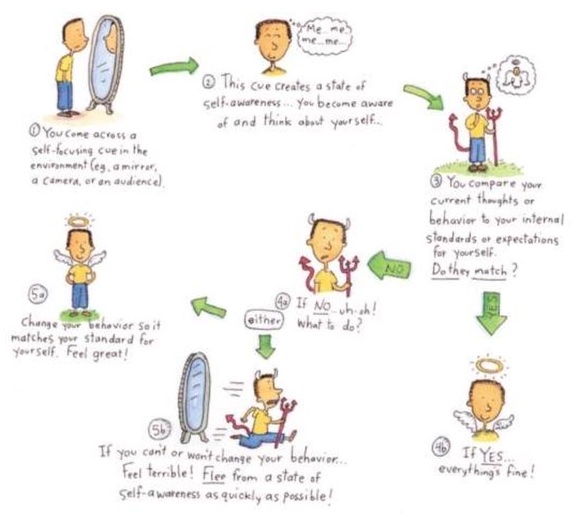 ① You come across a
self-focusing cue in the
environment (eg, a mirror,
a camera, or an audience).
Me...me...
me...me...
② This cue creates a state of
self-awareness... you become aware
of and think about yourself...
③ You compare your
current thoughts or
behavior to your internal
standards or expectations
for yourself.
Do they match?
NO
4a If NO...uh-oh!
What to do?
either
5a
Change your behavior so it
matches your standard for
yourself. Feel great!
5b
If you can't or won't change your behavior...
Feel terrible! Flee from a state of
self-awareness as quickly as possible!
YES
4b If YES...
everything's fine!